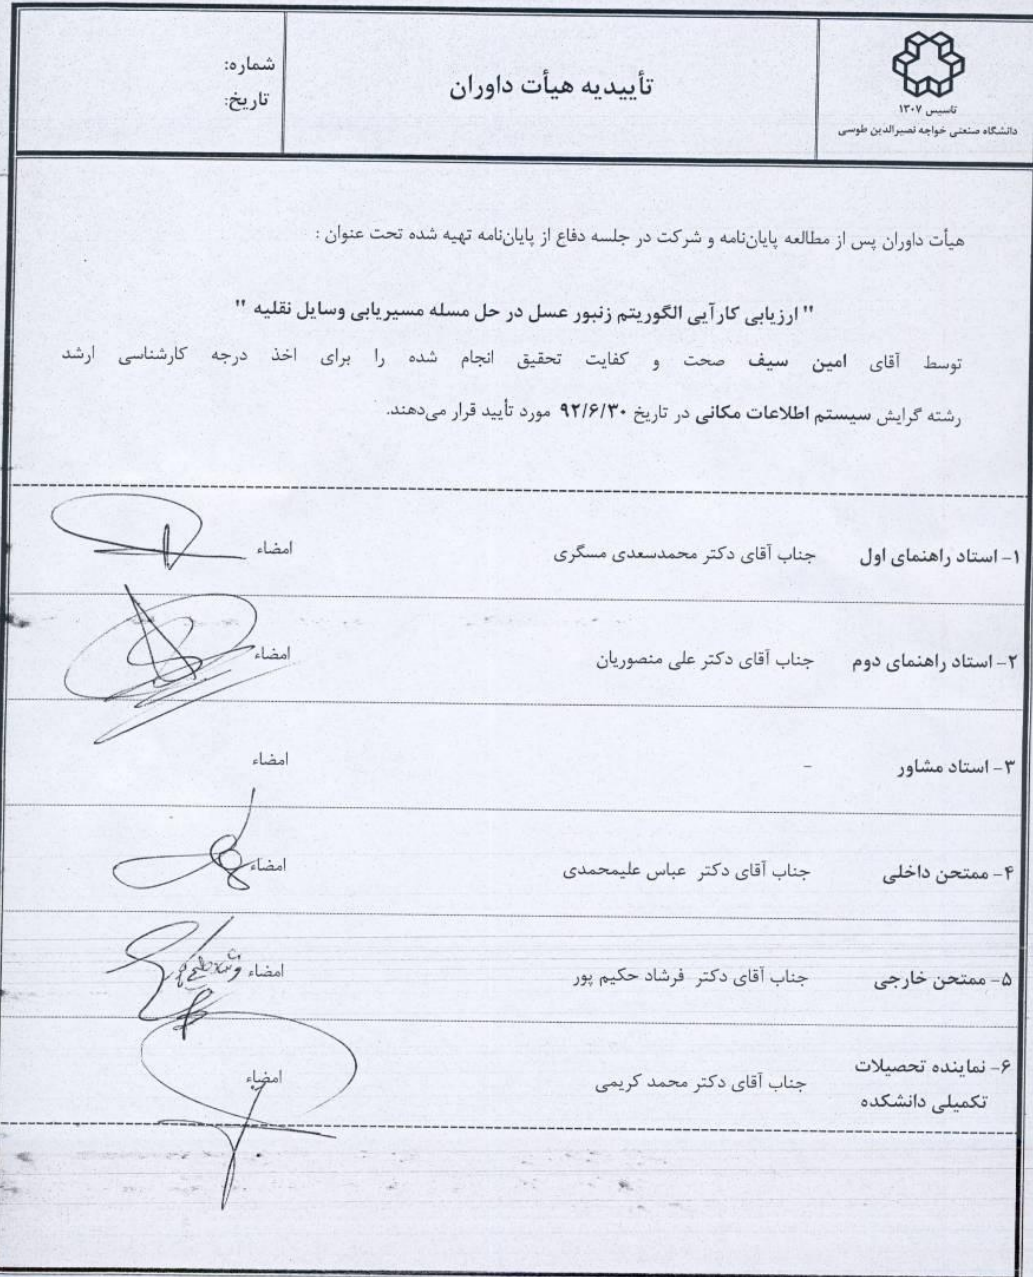 تاسیس ۱۳۰۷
دانشگاه صنعتی خواجه نصیرالدین طوسی
تأییدیه هیأت داوران
شماره:
تاریخ:
هیأت داوران پس از مطالعه پایان‌نامه و شرکت در جلسه دفاع از پایان‌نامه تهیه شده تحت عنوان :
" ارزیابی کارآیی الگوریتم زنبور عسل در حل مسله مسیریابی وسایل نقلیه "
توسط آقای امین سیف صحت و کفایت تحقیق انجام شده را برای اخذ درجه کارشناسی ارشد
رشته گرایش سیستم اطلاعات مکانی در تاریخ ۹۲/۶/۳۰ مورد تأیید قرار می‌دهند.
۱- استاد راهنمای اول جناب آقای دکتر محمدسعدی مسگری امضاء
۲- استاد راهنمای دوم جناب آقای دکتر علی منصوریان امضاء
۳- استاد مشاور - امضاء
۴- ممتحن داخلی جناب آقای دکتر عباس علیمحمدی امضاء
۵- ممتحن خارجی جناب آقای دکتر فرشاد حکیم پور امضاء
۶- نماینده تحصیلات جناب آقای دکتر محمد کریمی امضاء
تکمیلی دانشکده